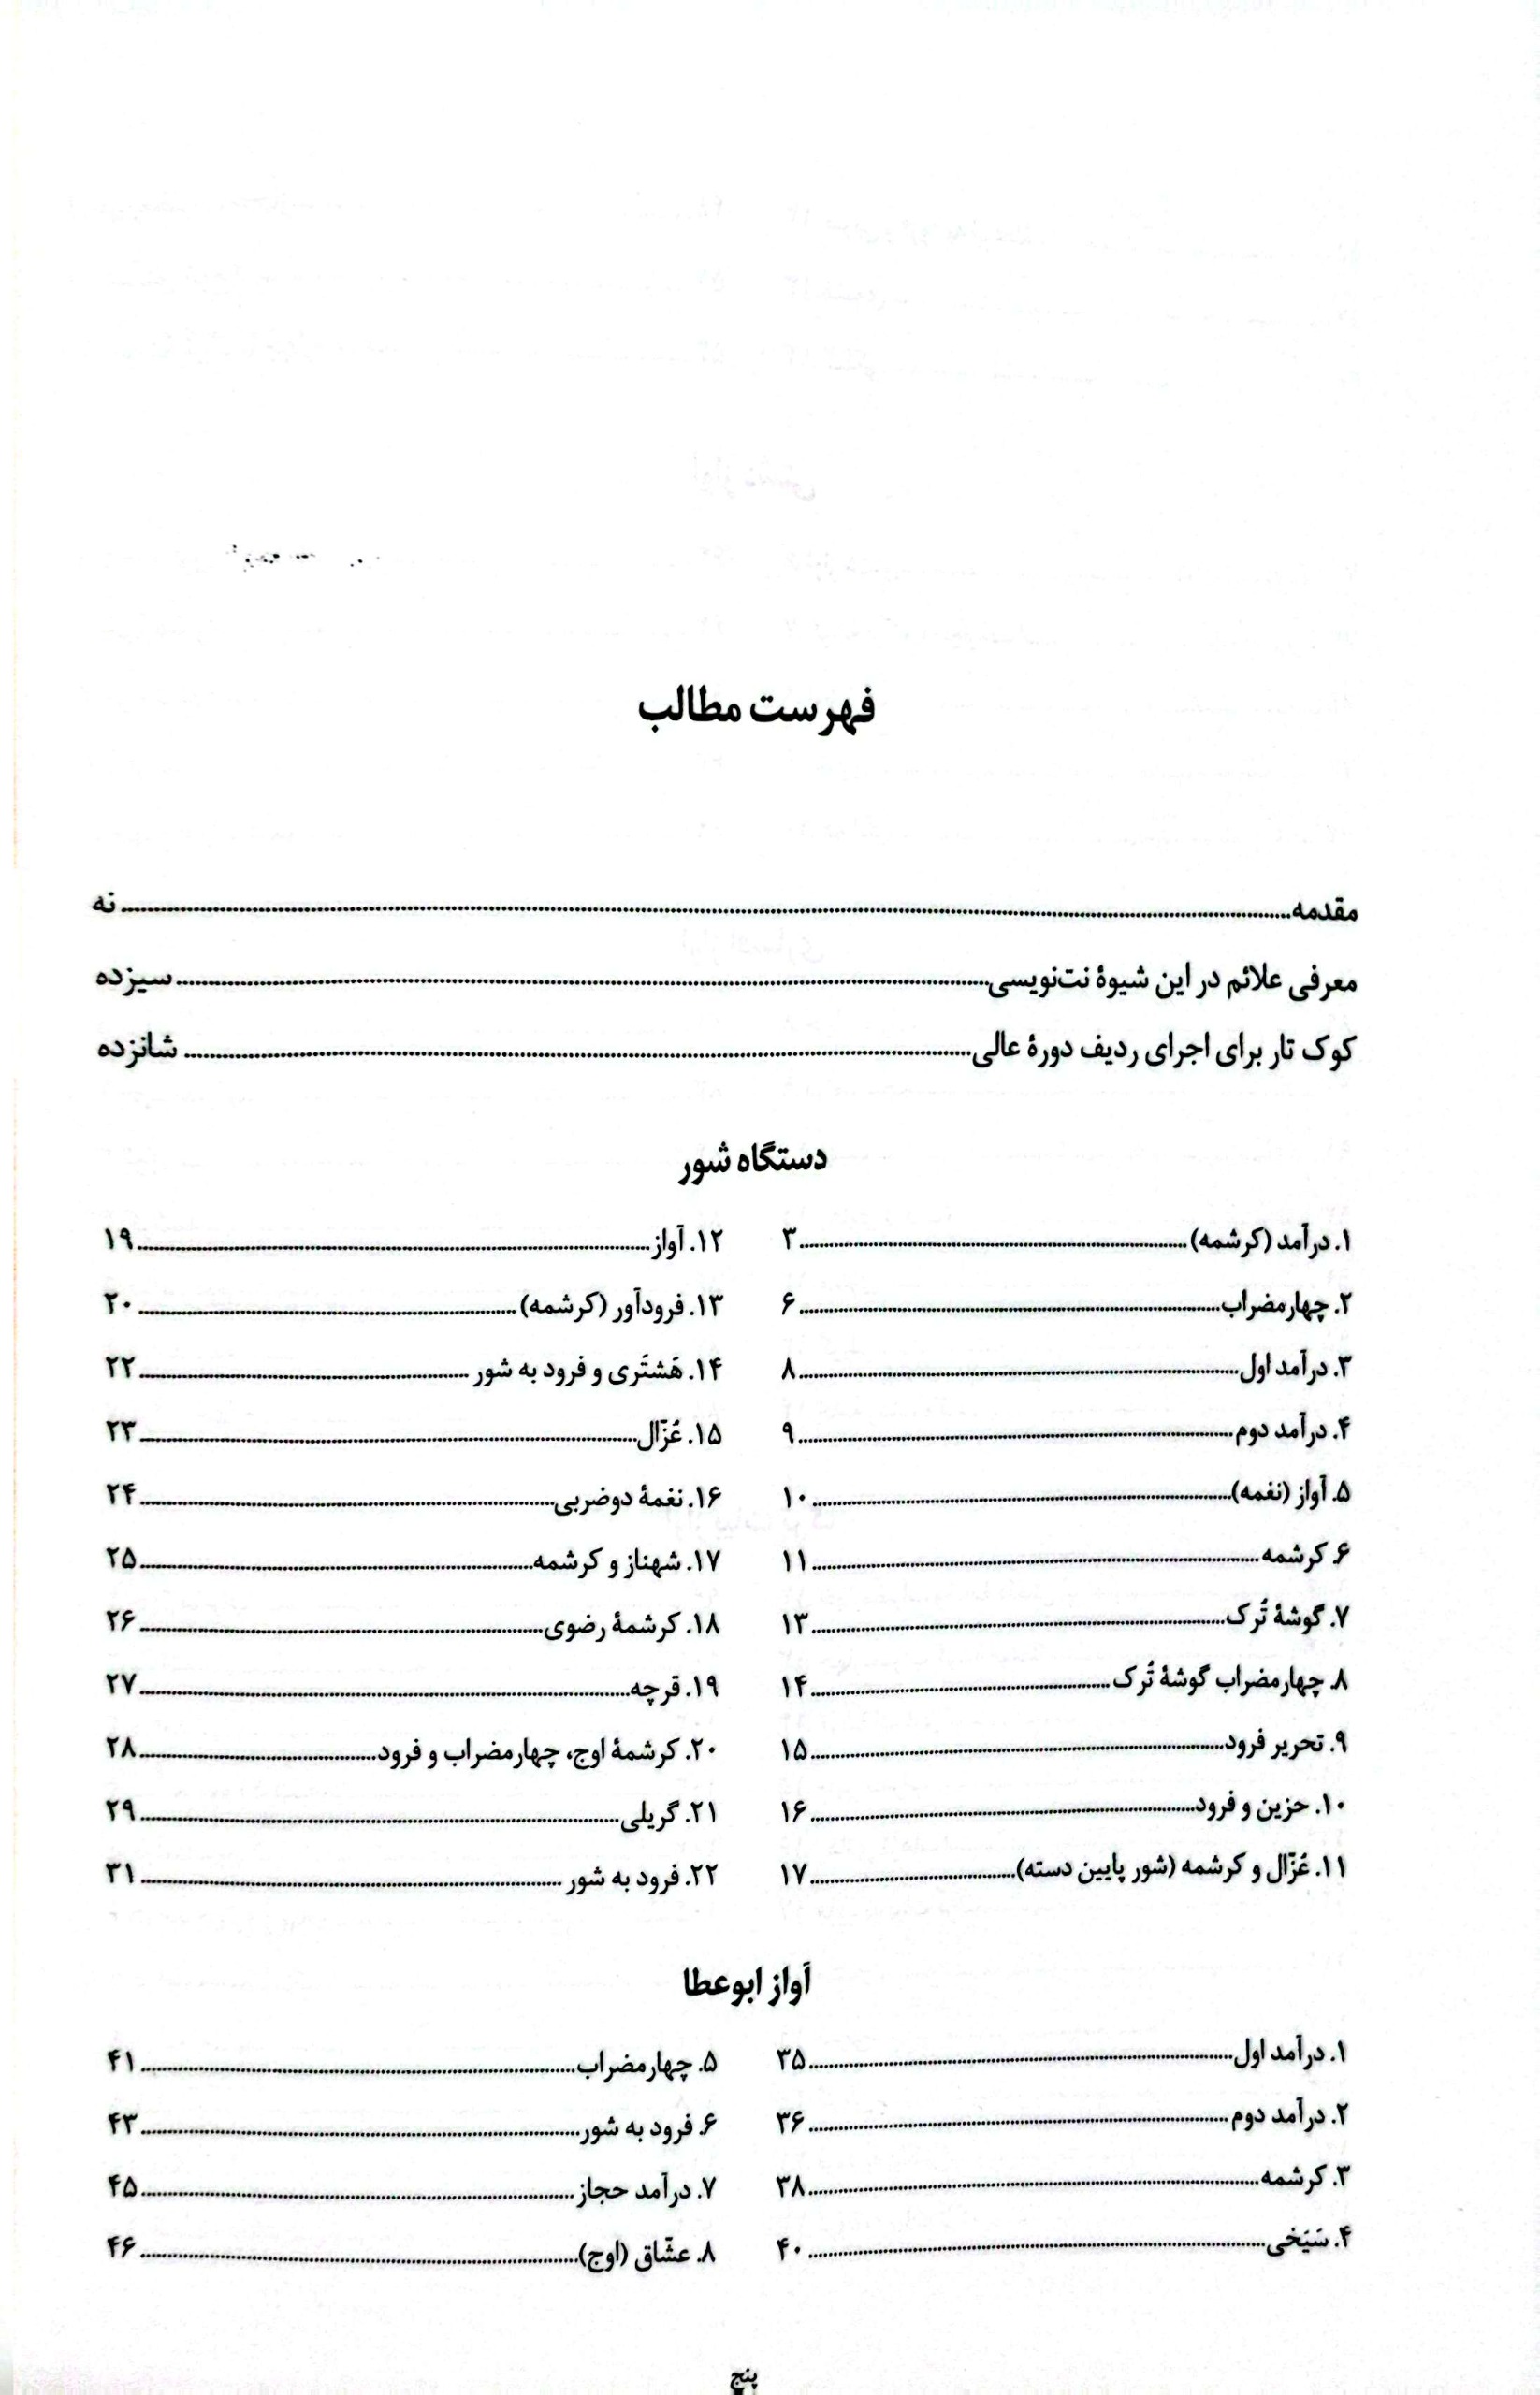 فهرست مطالب
مقدمه ........ نه
معرفی علائم در این شیوهٔ نت‌نویسی ........ سیزده
کوک تار برای اجرای ردیف دورهٔ عالی ........ شانزده
دستگاه شور
۱. درآمد (کرشمه) ........ ۳
۲. چهارمضراب ........ ۶
۳. درآمد اول ........ ۸
۴. درآمد دوم ........ ۹
۵. آواز (نغمه) ........ ۱۰
۶. کرشمه ........ ۱۱
۷. گوشهٔ تُرک ........ ۱۳
۸. چهارمضراب گوشهٔ تُرک ........ ۱۴
۹. تحریر فرود ........ ۱۵
۱۰. حزین و فرود ........ ۱۶
۱۱. غُزّال و کرشمه (شور پایین دسته) ........ ۱۷
۱۲. آواز ........ ۱۹
۱۳. فرودآور (کرشمه) ........ ۲۰
۱۴. هَشتَری و فرود به شور ........ ۲۲
۱۵. غُزّال ........ ۲۳
۱۶. نغمهٔ دوضربی ........ ۲۴
۱۷. شهناز و کرشمه ........ ۲۵
۱۸. کرشمهٔ رضوی ........ ۲۶
۱۹. قرچه ........ ۲۷
۲۰. کرشمهٔ اوج، چهارمضراب و فرود ........ ۲۸
۲۱. گریلی ........ ۲۹
۲۲. فرود به شور ........ ۳۱
آواز ابوعطا
۱. درآمد اول ........ ۳۵
۲. درآمد دوم ........ ۳۶
۳. کرشمه ........ ۳۸
۴. سَیَخی ........ ۴۰
۵. چهارمضراب ........ ۴۱
۶. فرود به شور ........ ۴۳
۷. درآمد حجاز ........ ۴۵
۸. عشّاق (اوج) ........ ۴۶
پنج